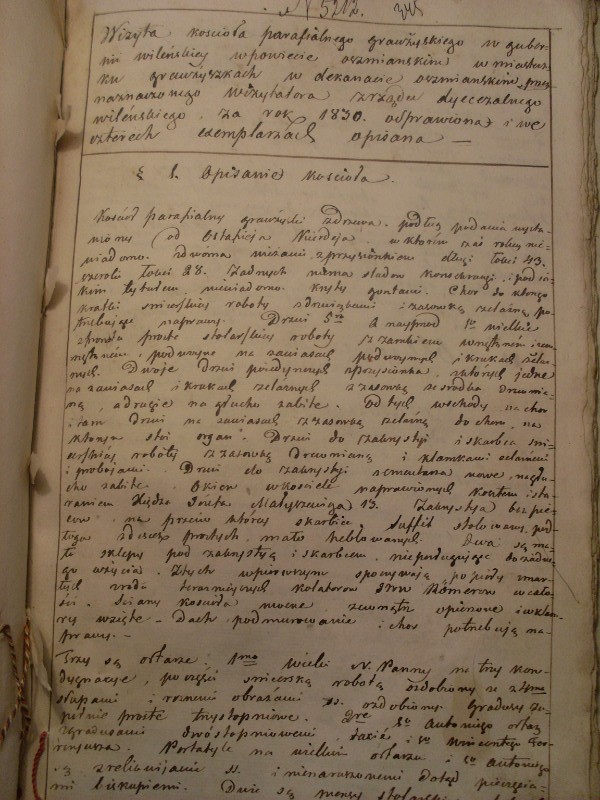 N 5212.
Wizyta kościoła parafialnego grawżyskiego w guber-
nii wileńskiey w powiecie oszmiańskim w miastecz-
ku grawżyszkach w dekanacie oszmiańskim przez
naznaczonego wizytatora zrządu dyecezalnego
wileńskiego za rok 1830. odprawiona i we
czterech exemplarzach opisana —
§ 1. Opisanie kościoła.
Kościół parafialny grawżyski z drzewa, podług podania wysta-
wiony od Eustafieja Kierdeja w którym zaś roku nie-
wiadomo. z dwoma wieżami, z przysionkiem długi łokci 43.
szeroki łokci 28. żadnych niema śladow konsekracyi i pod ja-
kim tytułem, niewiadomo. kryty gontami. Chor do którego
kratki snicerskiey roboty z drzwiczkami i zasowką żelazną po-
trzebuiące naprawy. Drzwi 5ro A nayprzod 1e wielkie
z frontu proste stolarskiey roboty z zamkiem wnętrznim
podwoyne na zawiasach i krukach żela-
znych. Dwoje drzwi poiedynczych z przysionka, z których jedne
na zawiasach i krukach żelaznych z zasową ze srodka drewnia-
ną, a drugie na głucho zabite. Od tych wschody na chor
i tam drzwi na zawiasach z zasowką żelazną do choru, na
którym stoi organ. Drzwi do zakrystyi i skarbca sni-
cerskiey roboty z zasową drewnianą i klamkami żelaznemi
i probojami. Drzwi do zakrystyi z cmentarza nowe, na głu-
cho zabite. Okien w kościele naprawionych kosztem i sta-
raniem Xiędza Józefa 13. Zakrystya bez pie-
ca na przeciw którey skarbiec. Suffit stolowany, pod-
łoga z desek prostych, mało heblowanych. Dwa są ma-
łe sklepy pod zakrystyą i skarbcem, nieposługuiące do żadne-
go użycia. Z tych w pierwszym spoczywają popioły zmar-
łych teraznieyszych kolatorow Jww Römerow w cało-
ści. Sciany kościoła mocne, zewnątrz opierzone i w klam-
ry wzięte. Dach, podmurowanie i chor potrzebują na-
prawy. —
Trzy są ołtarze: 1mo Wielki N. Panny na trzy kon-
dygnacye, po części snicerską robotą ozdobiony ze 4ma
słupami i rożnemi obrazami ss. ozdobiony. Gradusy zu-
pełnie proste trzystopniowe. 2re So Antoniego ołtarz
z gradusami dwóstopniowemi, także i So Wincentego Fer-
reryusza. Portatyle na wielkim ołtarzu i So Antoniego
są z relikwijami ss. i nienaruszonemi dotąd pieczęcia-
mi biskupiemi. Dwie są mensy